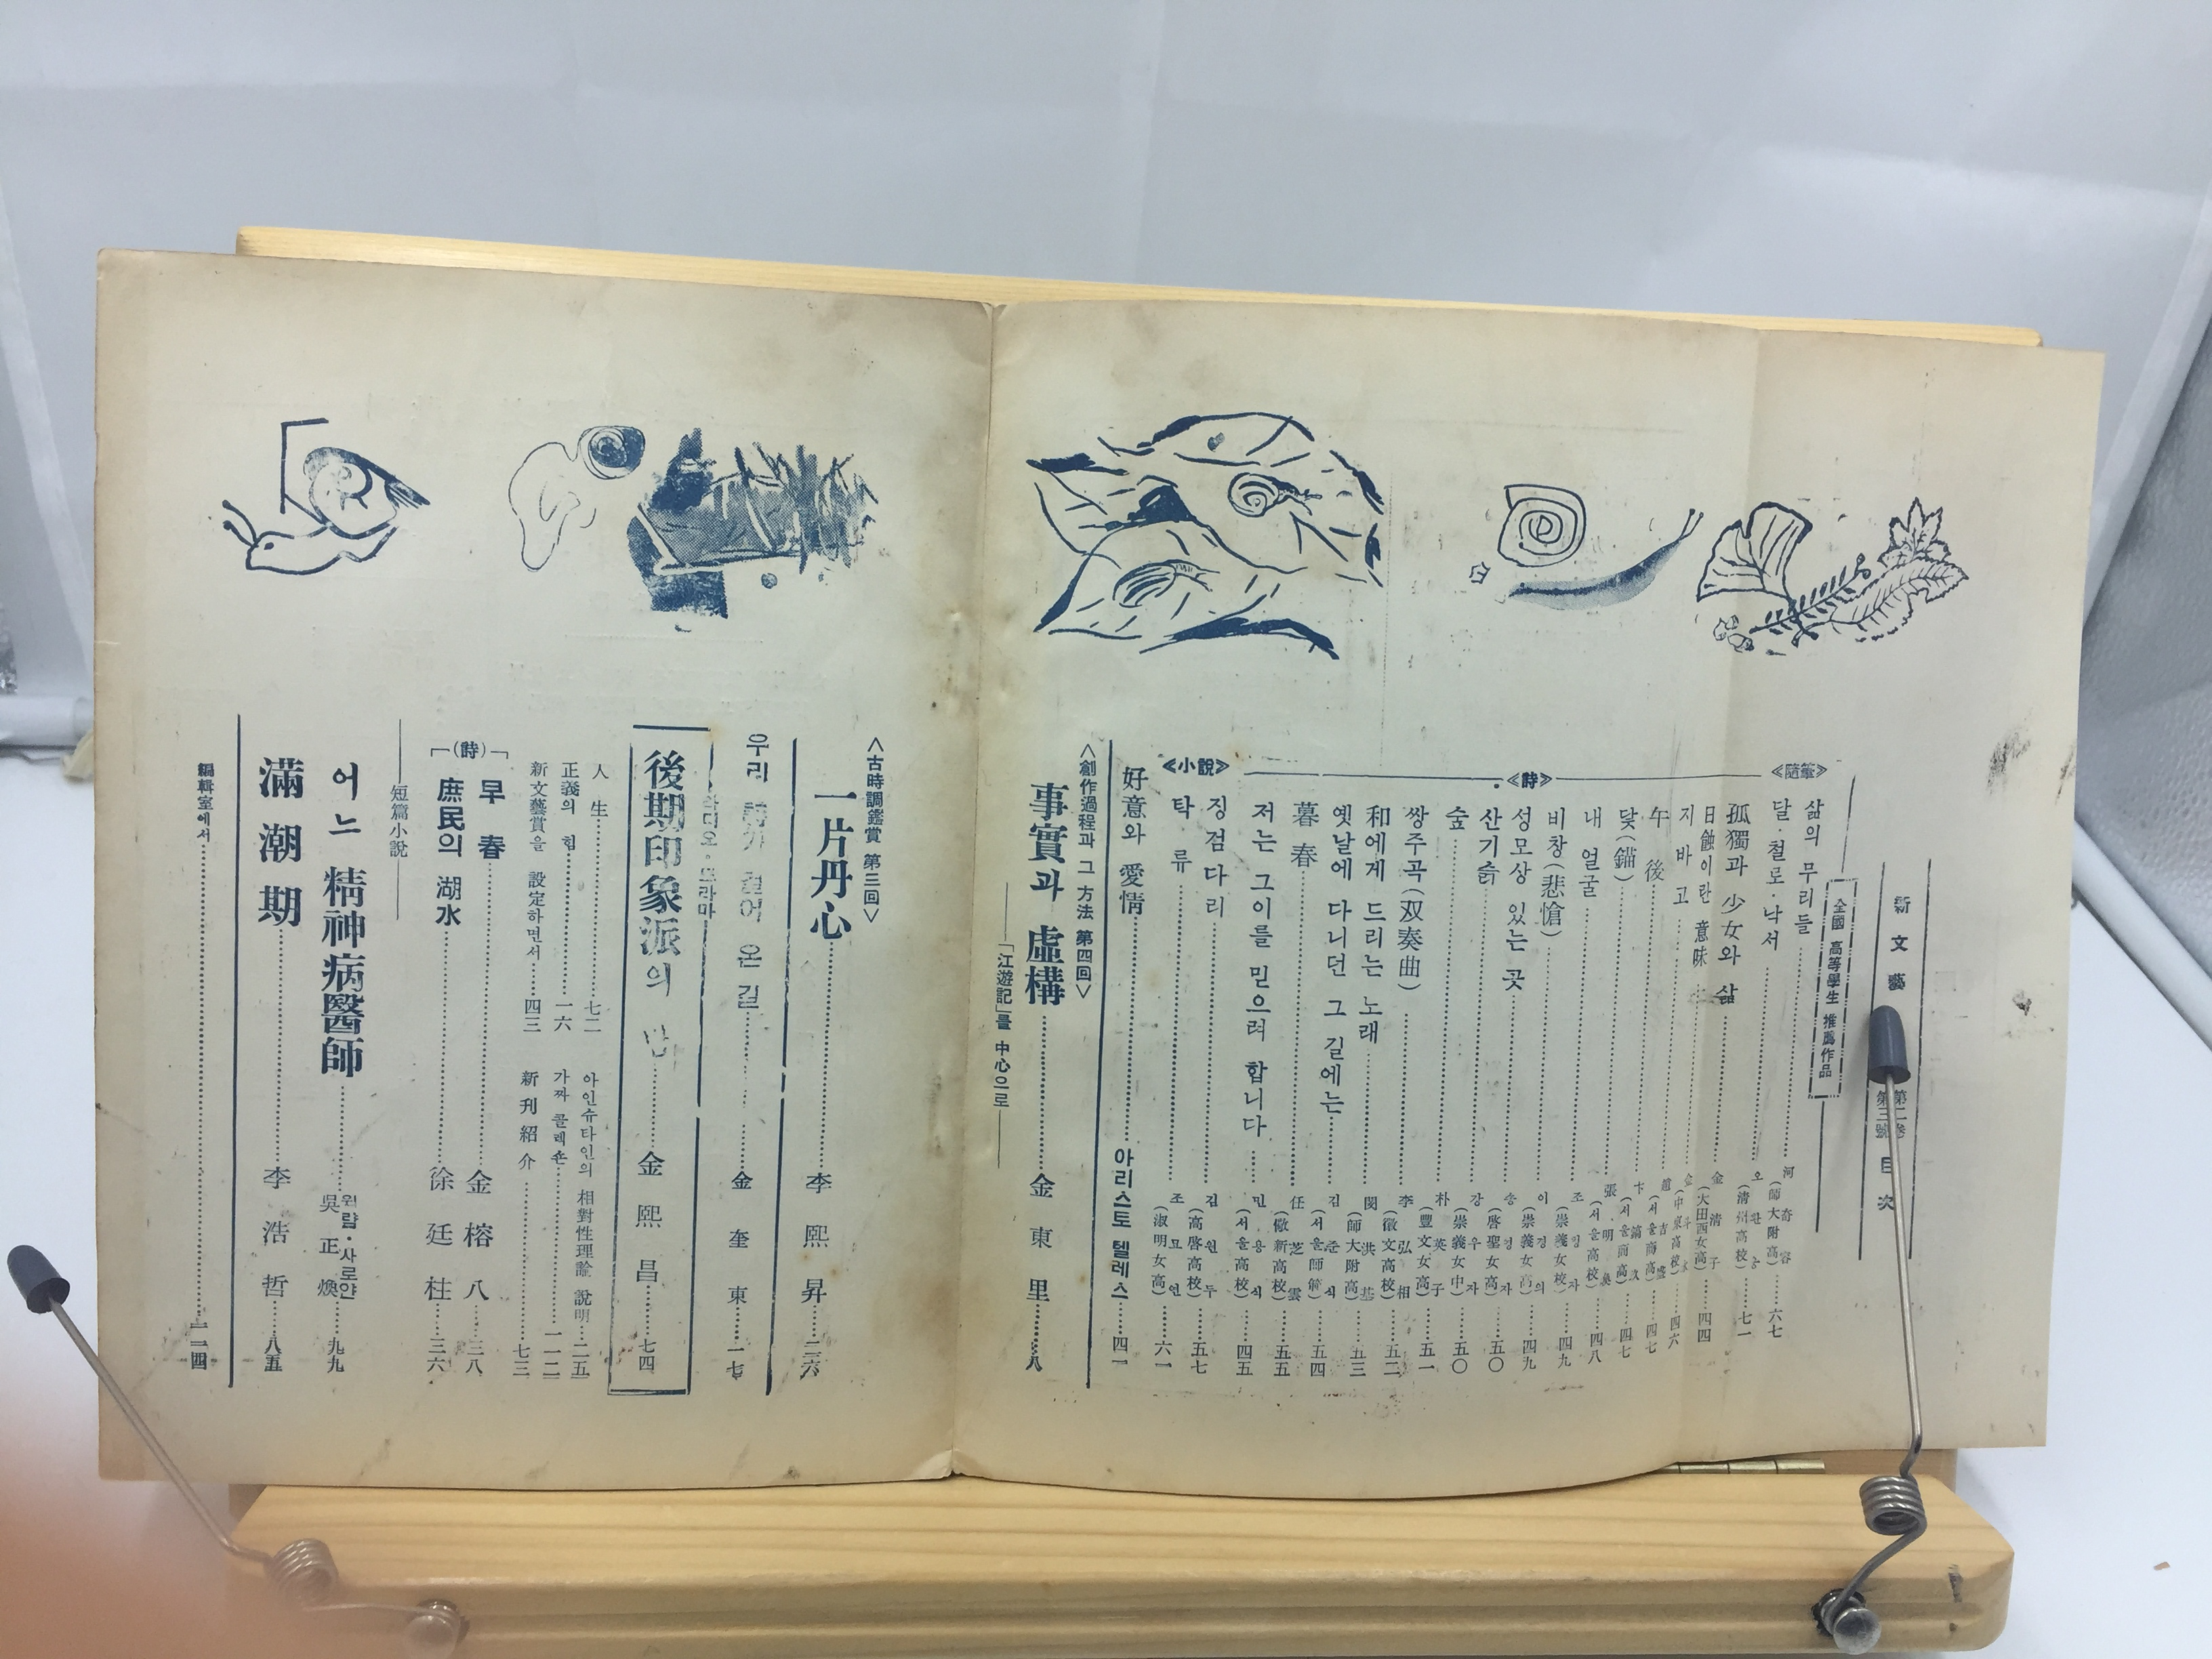 新文藝 第二卷 第三號 目次
全國 高等學生 推薦作品
≪隨筆≫
삶의 무리들 河奇容 (師大附高) 六七
달·철로·낙서 (清州高校) 七一
孤獨과 少女와 삶 金清子 (大田西女高) 四四
≪詩≫
日蝕이란 意味
지바고 四六
午後 (서울商高) 四七
닻(錨) (서울商高) 四七
내 얼굴 張明 (서울高校) 四八
비창(悲愴) 조 자 (崇義女校) 四九
성모상 있는 곳 이경의 (崇義女高) 四九
산기슭 송경자 (啓聖女高) 五〇
숲 강우자 (崇義女中) 五〇
쌍주곡(双奏曲) 朴英子 (豊文女高) 五一
和에게 드리는 노래 李弘相 (徽文高校) 五二
옛날에 다니던 그 길에는 閔洪基 (師大附高) 五三
暮春 김준식 (서울師範) 五四
저는 그이를 믿으려 합니다 任芝雲 (儆新高校) 五五
민용식 (서울高校) 四五
≪小說≫
징검다리 김원두 (高啓高校) 五七
탁류 조묘연 (淑明女高) 六一
好意와 愛情 아리스토텔레스 四一
<創作過程과 그 方法 第四回>
事實과 虛構 金東里 八
「江遊記」를 中心으로
<古時調鑑賞 第三回>
一片丹心 李熙昇 三六
우리 詩가 걸어 온 길 金奎東 一七
라디오·드라마
後期印象派의 金熙昌 七四
人生 七二
正義의 힘 一六
新文藝賞을 設定하면서 四三
아인슈타인의 相對性理論 說明 二五
가짜 콜렉숀 一一二
新刊紹介 七三
(詩)
早春 金榕八 三八
庶民의 湖水 徐廷柱 三六
短篇小說
어느 精神病醫師 윌럄·사로얀 吳正煥 九九
滿潮期 李浩哲 八五
編輯室에서 一二四